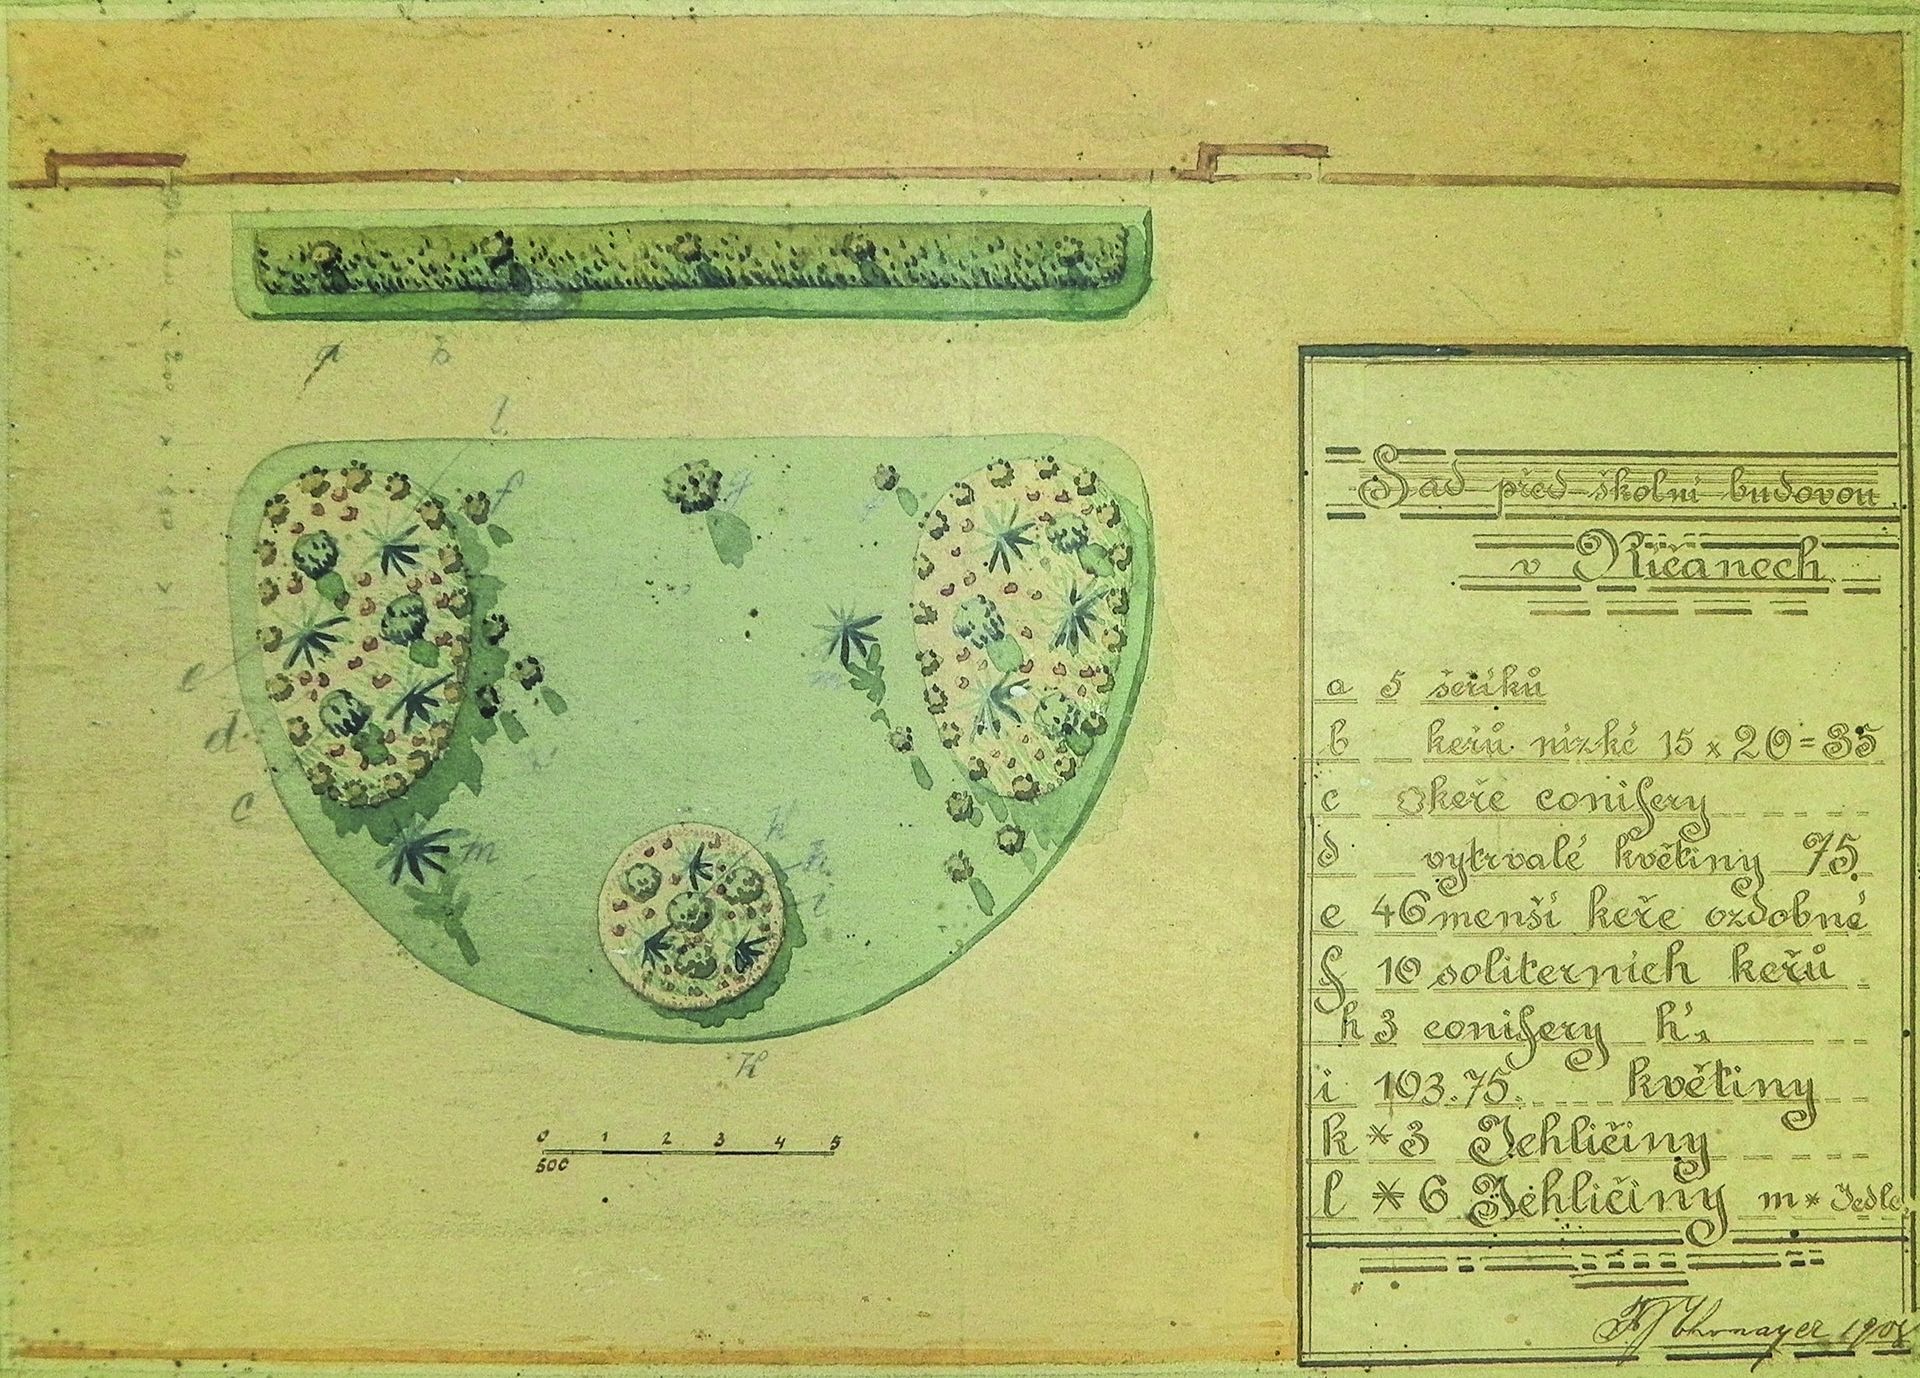 a
b
l
f
g
e
m
d
c
m
h
k
i
H
0 1 2 3 4 5
500
Sad před školní budovou
v Říčanech
a 5 šeříků
b keřů nízké 15 x 20 = 35
c keře conifery
d vytrvalé květiny 75
e 46 menší keře ozdobné
f 10 soliterních keřů
h 3 conifery h's
i 103.75. květiny
k * 3 Jehličiny
l * 6 Jehličiny m * Jedle
Thomayer